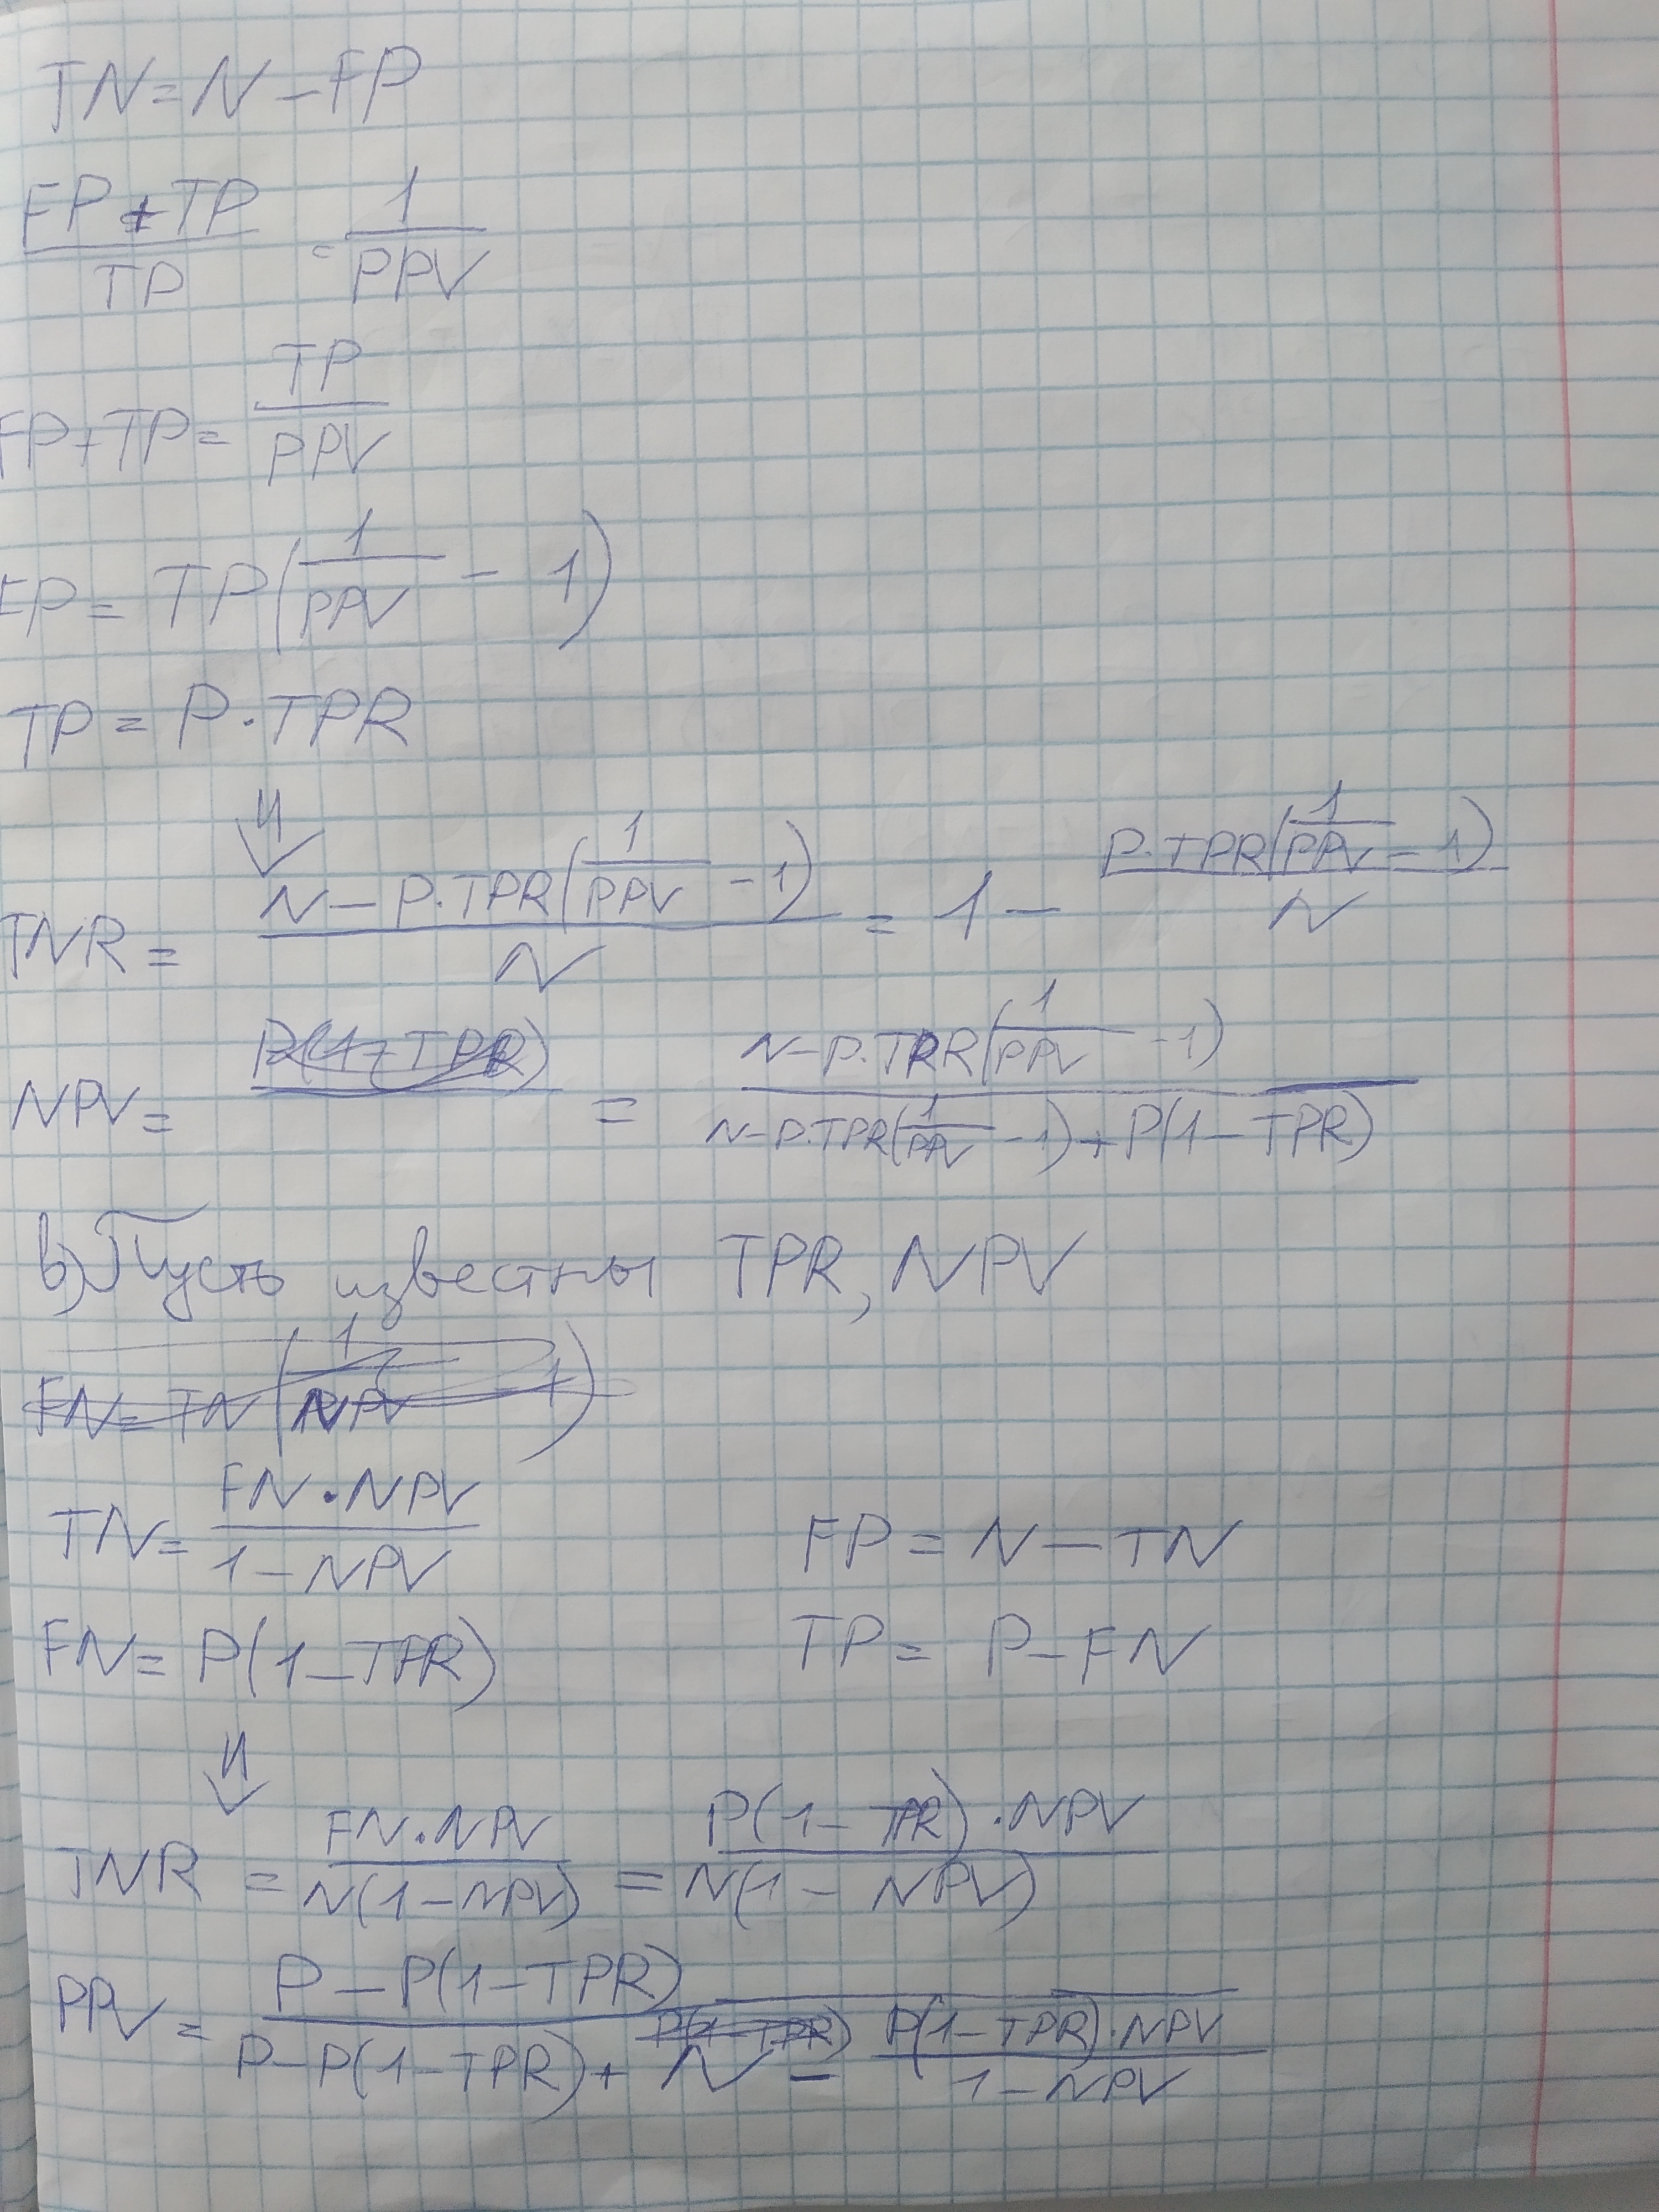 TN = N - FP
(FP + TP)/TP = 1/PPV
FP + TP = TP/PPV
FP = TP(1/PPV - 1)
TP = P · TPR
⇓
TNR = (N - P·TPR(1/PPV - 1))/N = 1 - (P·TPR(1/PPV - 1))/N
NPV = = (N - P·TPR(1/PPV - 1))/(N - P·TPR(1/PPV - 1) + P(1 - TPR))
в) Пусть известны TPR, NPV
FN = TN(1/NPV - 1)
TN = (FN · NPV)/(1 - NPV) FP = N - TN
FN = P(1 - TPR) TP = P - FN
⇓
TNR = (FN · NPV)/(N(1 - NPV)) = (P(1 - TPR) · NPV)/(N(1 - NPV))
PPV = (P - P(1 - TPR))/(P - P(1 - TPR) + N - (P(1 - TPR) · NPV)/(1 - NPV))